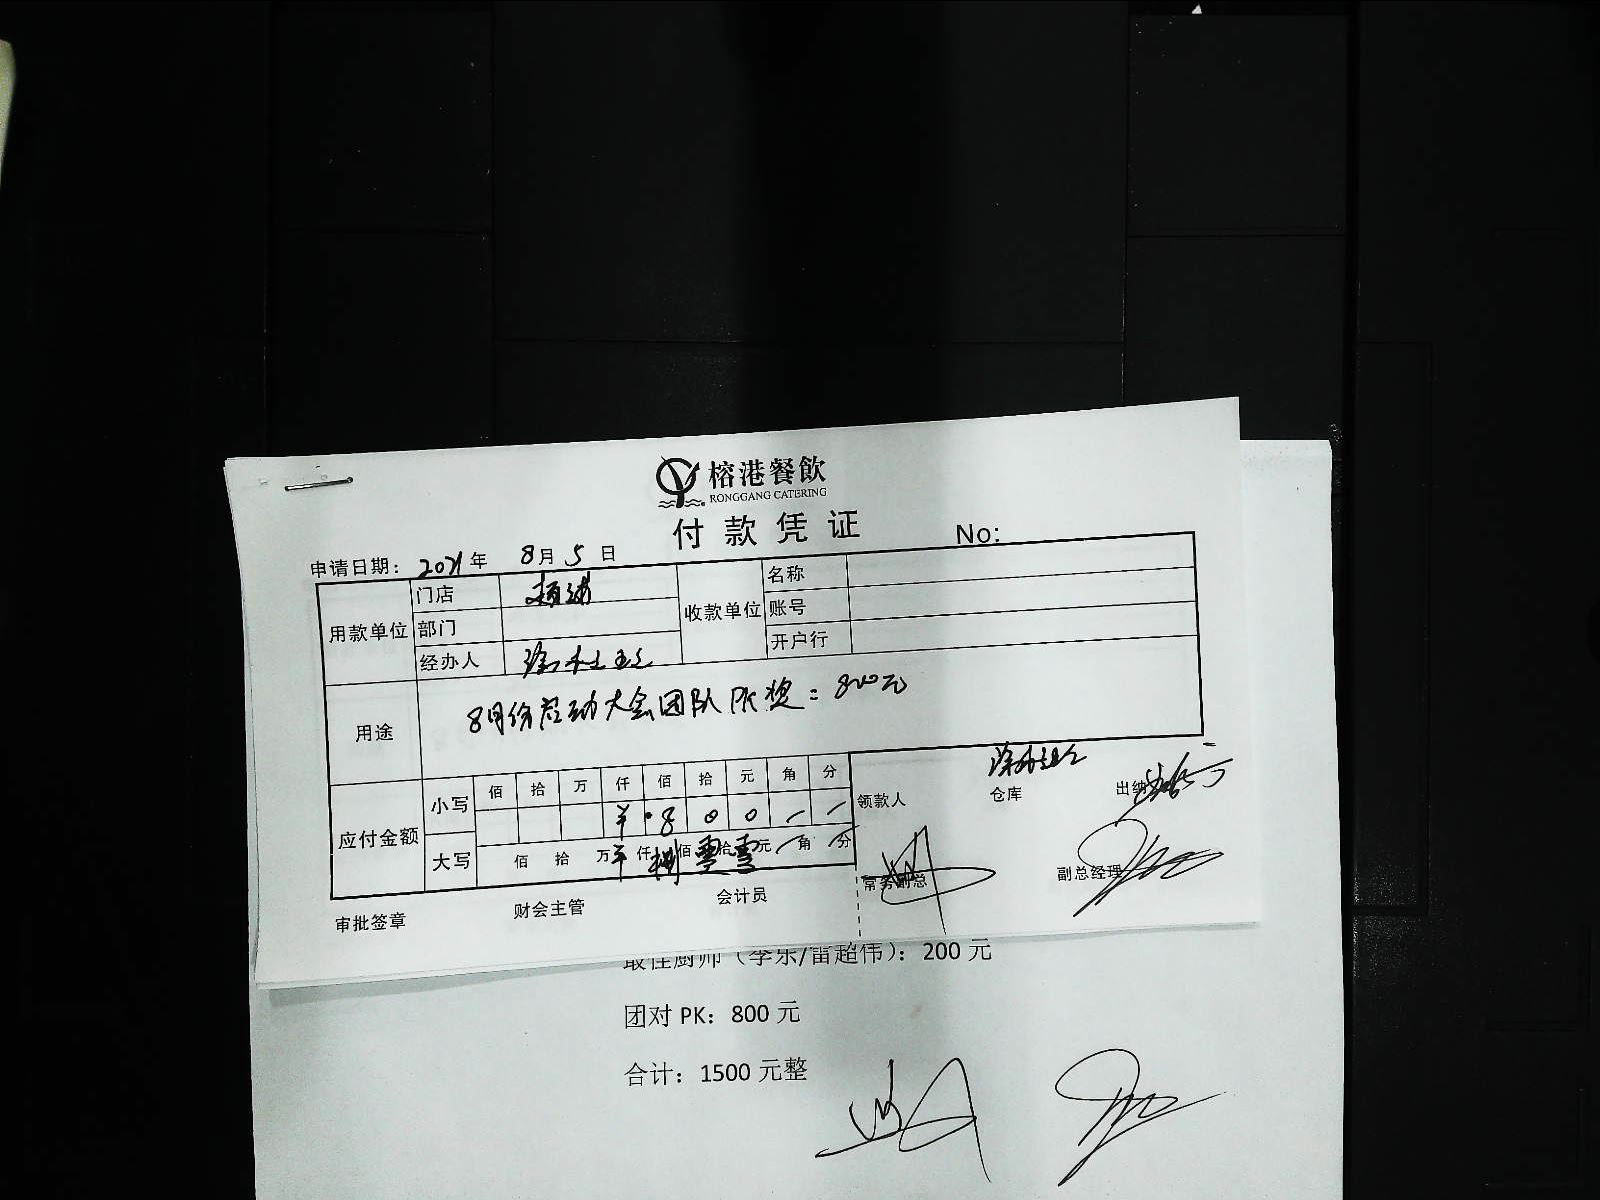 榕港餐飲
RONGGANG CATERING
付款凭证
No:
申请日期: 2021年 8月 5日
用款单位 门店
部门
经办人
收款单位 名称
账号
开户行
用途 8月份启动大会团队PK奖：800元
应付金额 小写 佰 拾 万 仟 佰 拾 元 角 分
¥ 8 0 0 — —
大写 佰 拾 万 仟 捌 佰 零 拾 零 元 角 分
领款人 仓库 出纳
常务副总 副总经理
审批签章 财会主管 会计员
最佳厨师（李乐/雷超伟）：200 元
团对 PK：800 元
合计：1500 元整